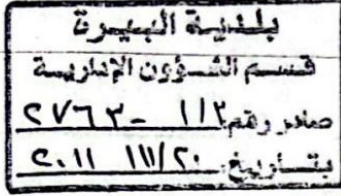 بلدية البيرة
قسم الشؤون الإدارية
صادر رقم ١١٢ - ٢٧٦٣
بتاريخ ٢٠/١١/٢٠١١